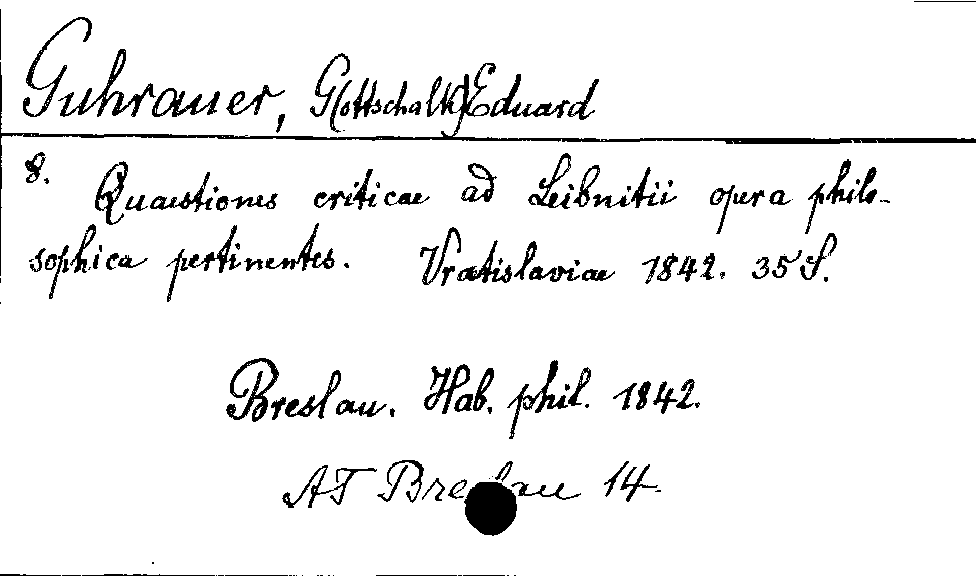 Guhrauer, G(ottschalk) Eduard
8. Quaestiones criticae ad Leibnitii opera philo-
sophica pertinentes. Vratislaviae 1842. 35 S.
Breslau. Hab. phil. 1842.
AT Breslau 14.